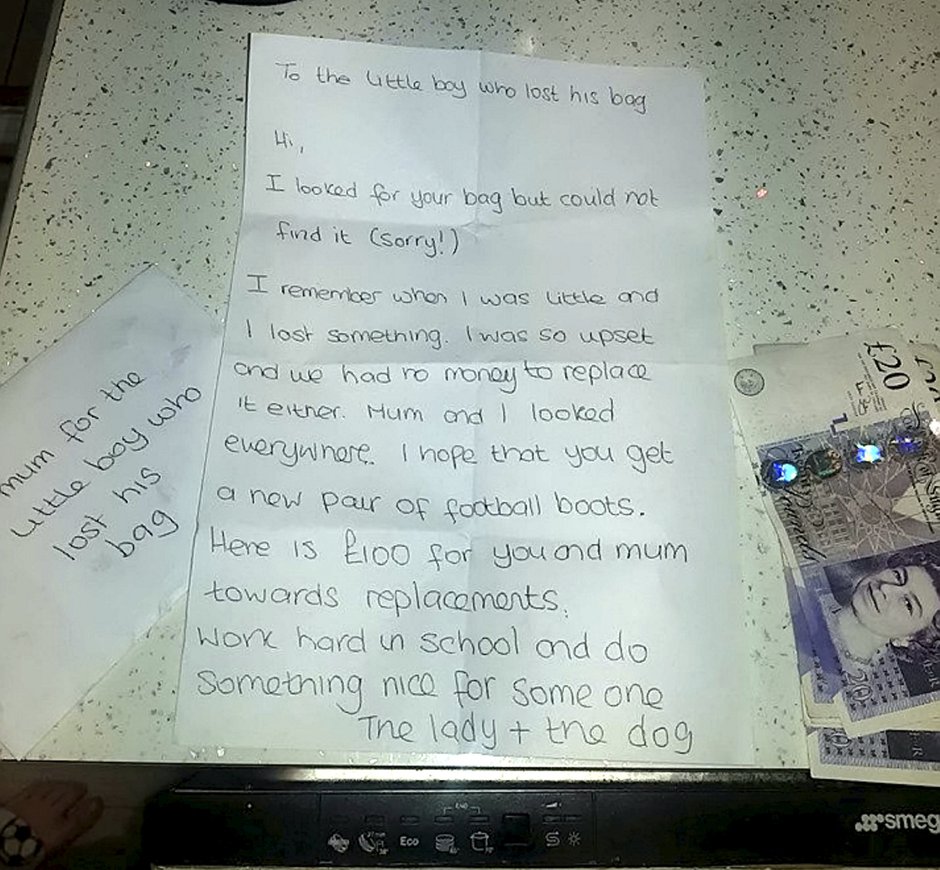 To the little boy who lost his bag
Hi,
I looked for your bag but could not
find it (sorry!)
I remember when I was little and
I lost something. I was so upset
and we had no money to replace
it either. Mum and I looked
everywhere. I hope that you get
a new pair of football boots.
Here is £100 for you and mum
towards replacements.
Work hard in school and do
something nice for some one
The lady + the dog
mum for the
little boy who
lost his
bag
£20
20
Eco
smeg